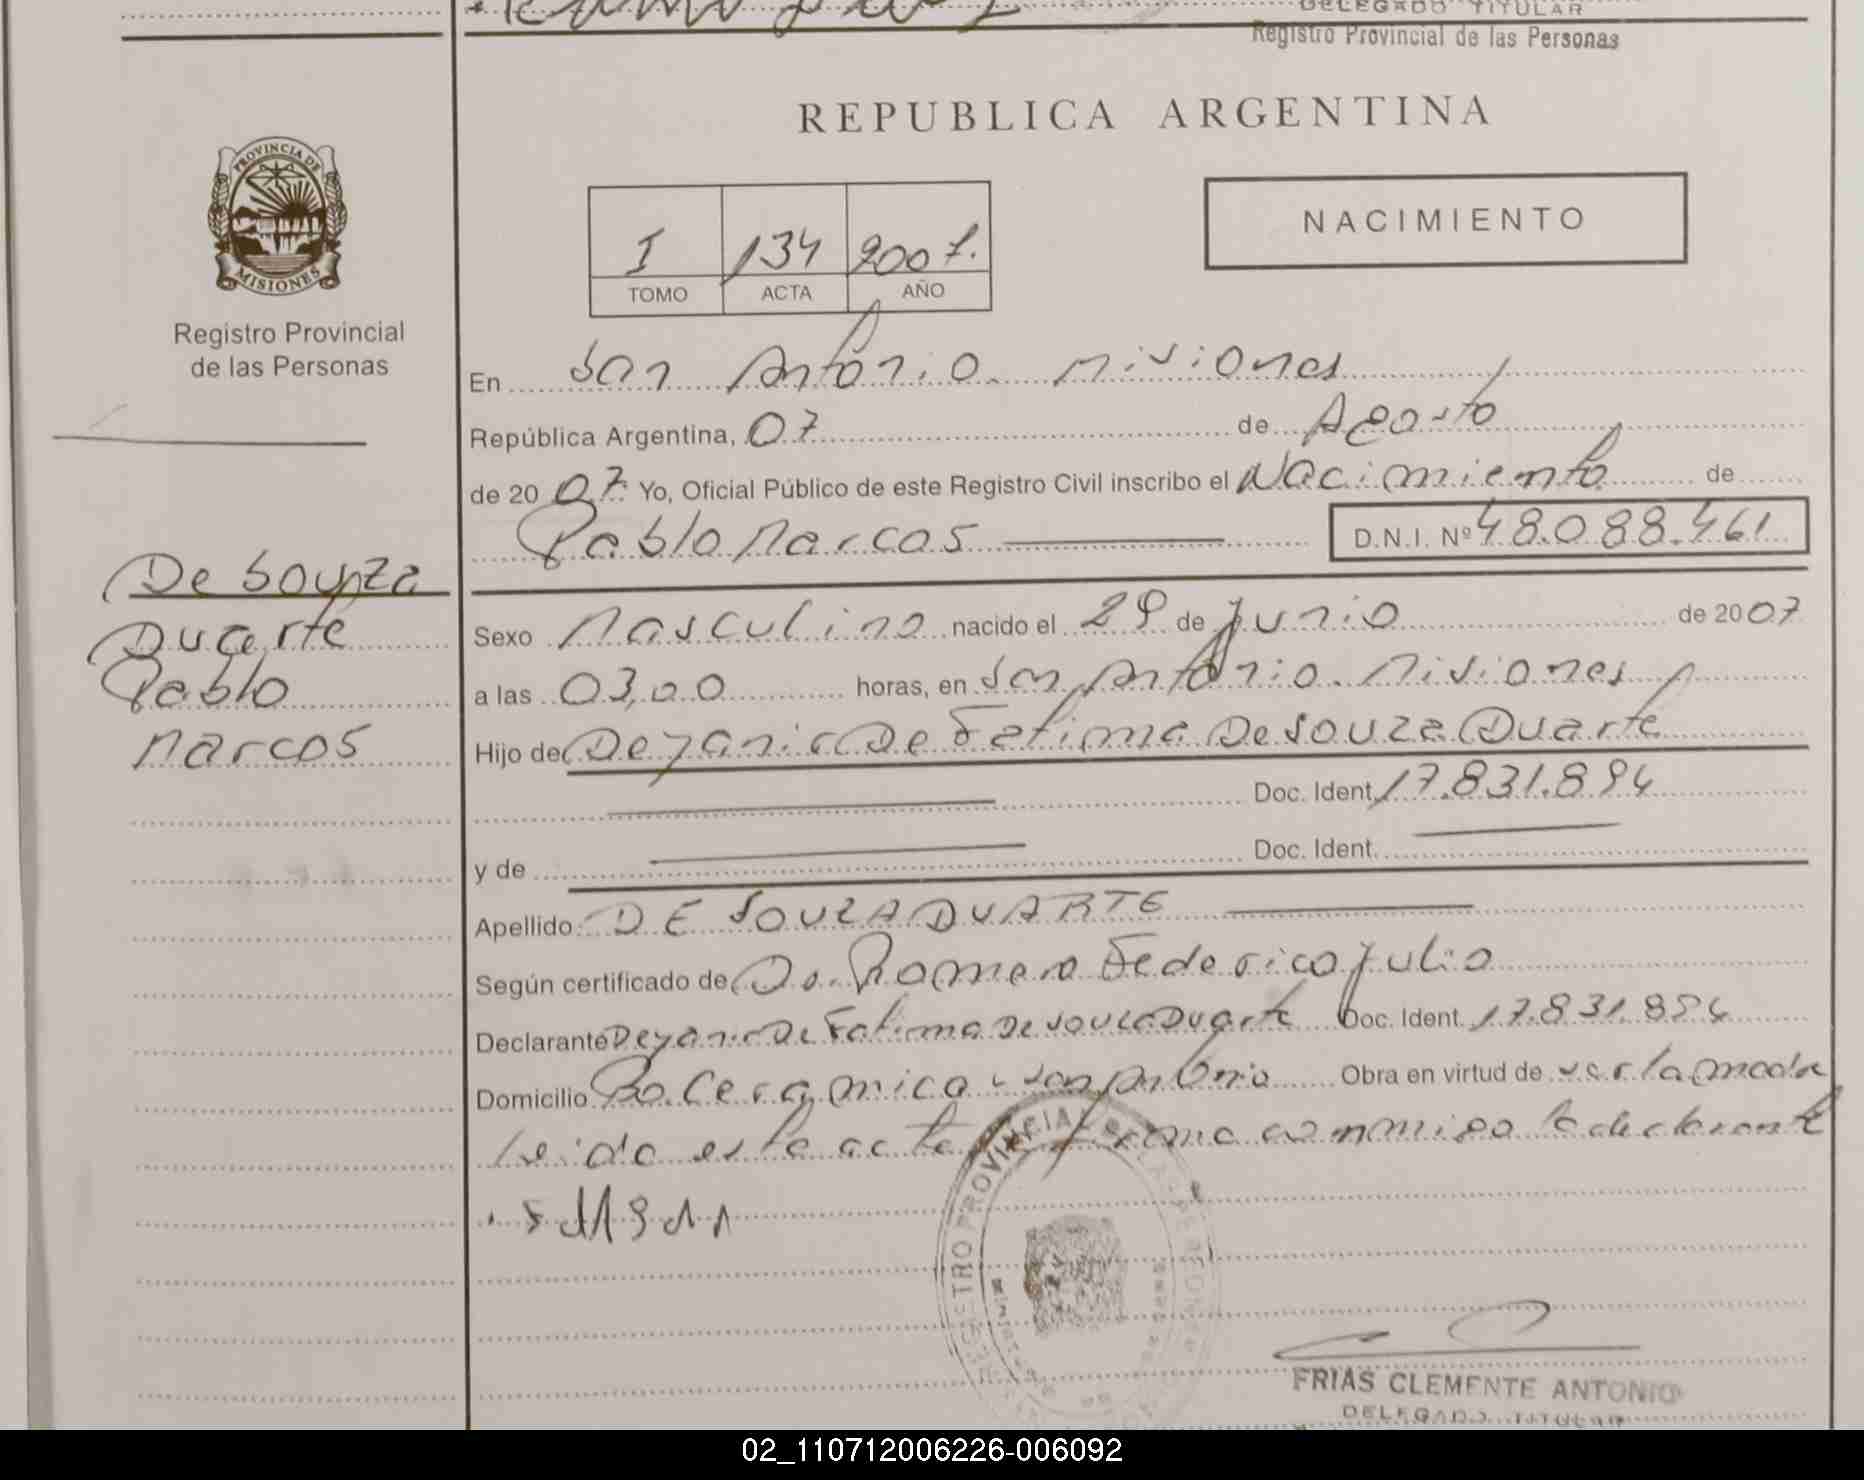 DELEGADO TITULAR
Registro Provincial de las Personas
PROVINCIA DE
MISIONES
Registro Provincial
de las Personas
De Souza
Duarte
Pablo
Marcos
REPUBLICA ARGENTINA
I 134 2007.
TOMO ACTA AÑO
NACIMIENTO
En San Antonio. Misiones
República Argentina, 07 de Agosto
de 20 07 Yo, Oficial Público de este Registro Civil inscribo el Nacimiento de
Pablo Marcos D.N.I. Nº 48.088.461
Sexo Masculino nacido el 29 de Junio de 2007
a las 03,00 horas, en San Antonio. Misiones
Hijo de Deyanira De Fatima De Souza Duarte
Doc. Ident. 17.831.894
y de Doc. Ident.
Apellido DE SOUZA DUARTE
Según certificado de Dr. Romero Federico Julio
Declarante Deyanira De Fatima De Souza Duarte Doc. Ident. 17.831.894
Domicilio Bo. Ceramica - San Antonio Obra en virtud de ser la madre
Leida esta acta firma conmigo la declarante
REGISTRO PROVINCIAL DE LAS PERSONAS
FRIAS CLEMENTE ANTONIO
DELEGADO TITULAR
02_110712006226-006092